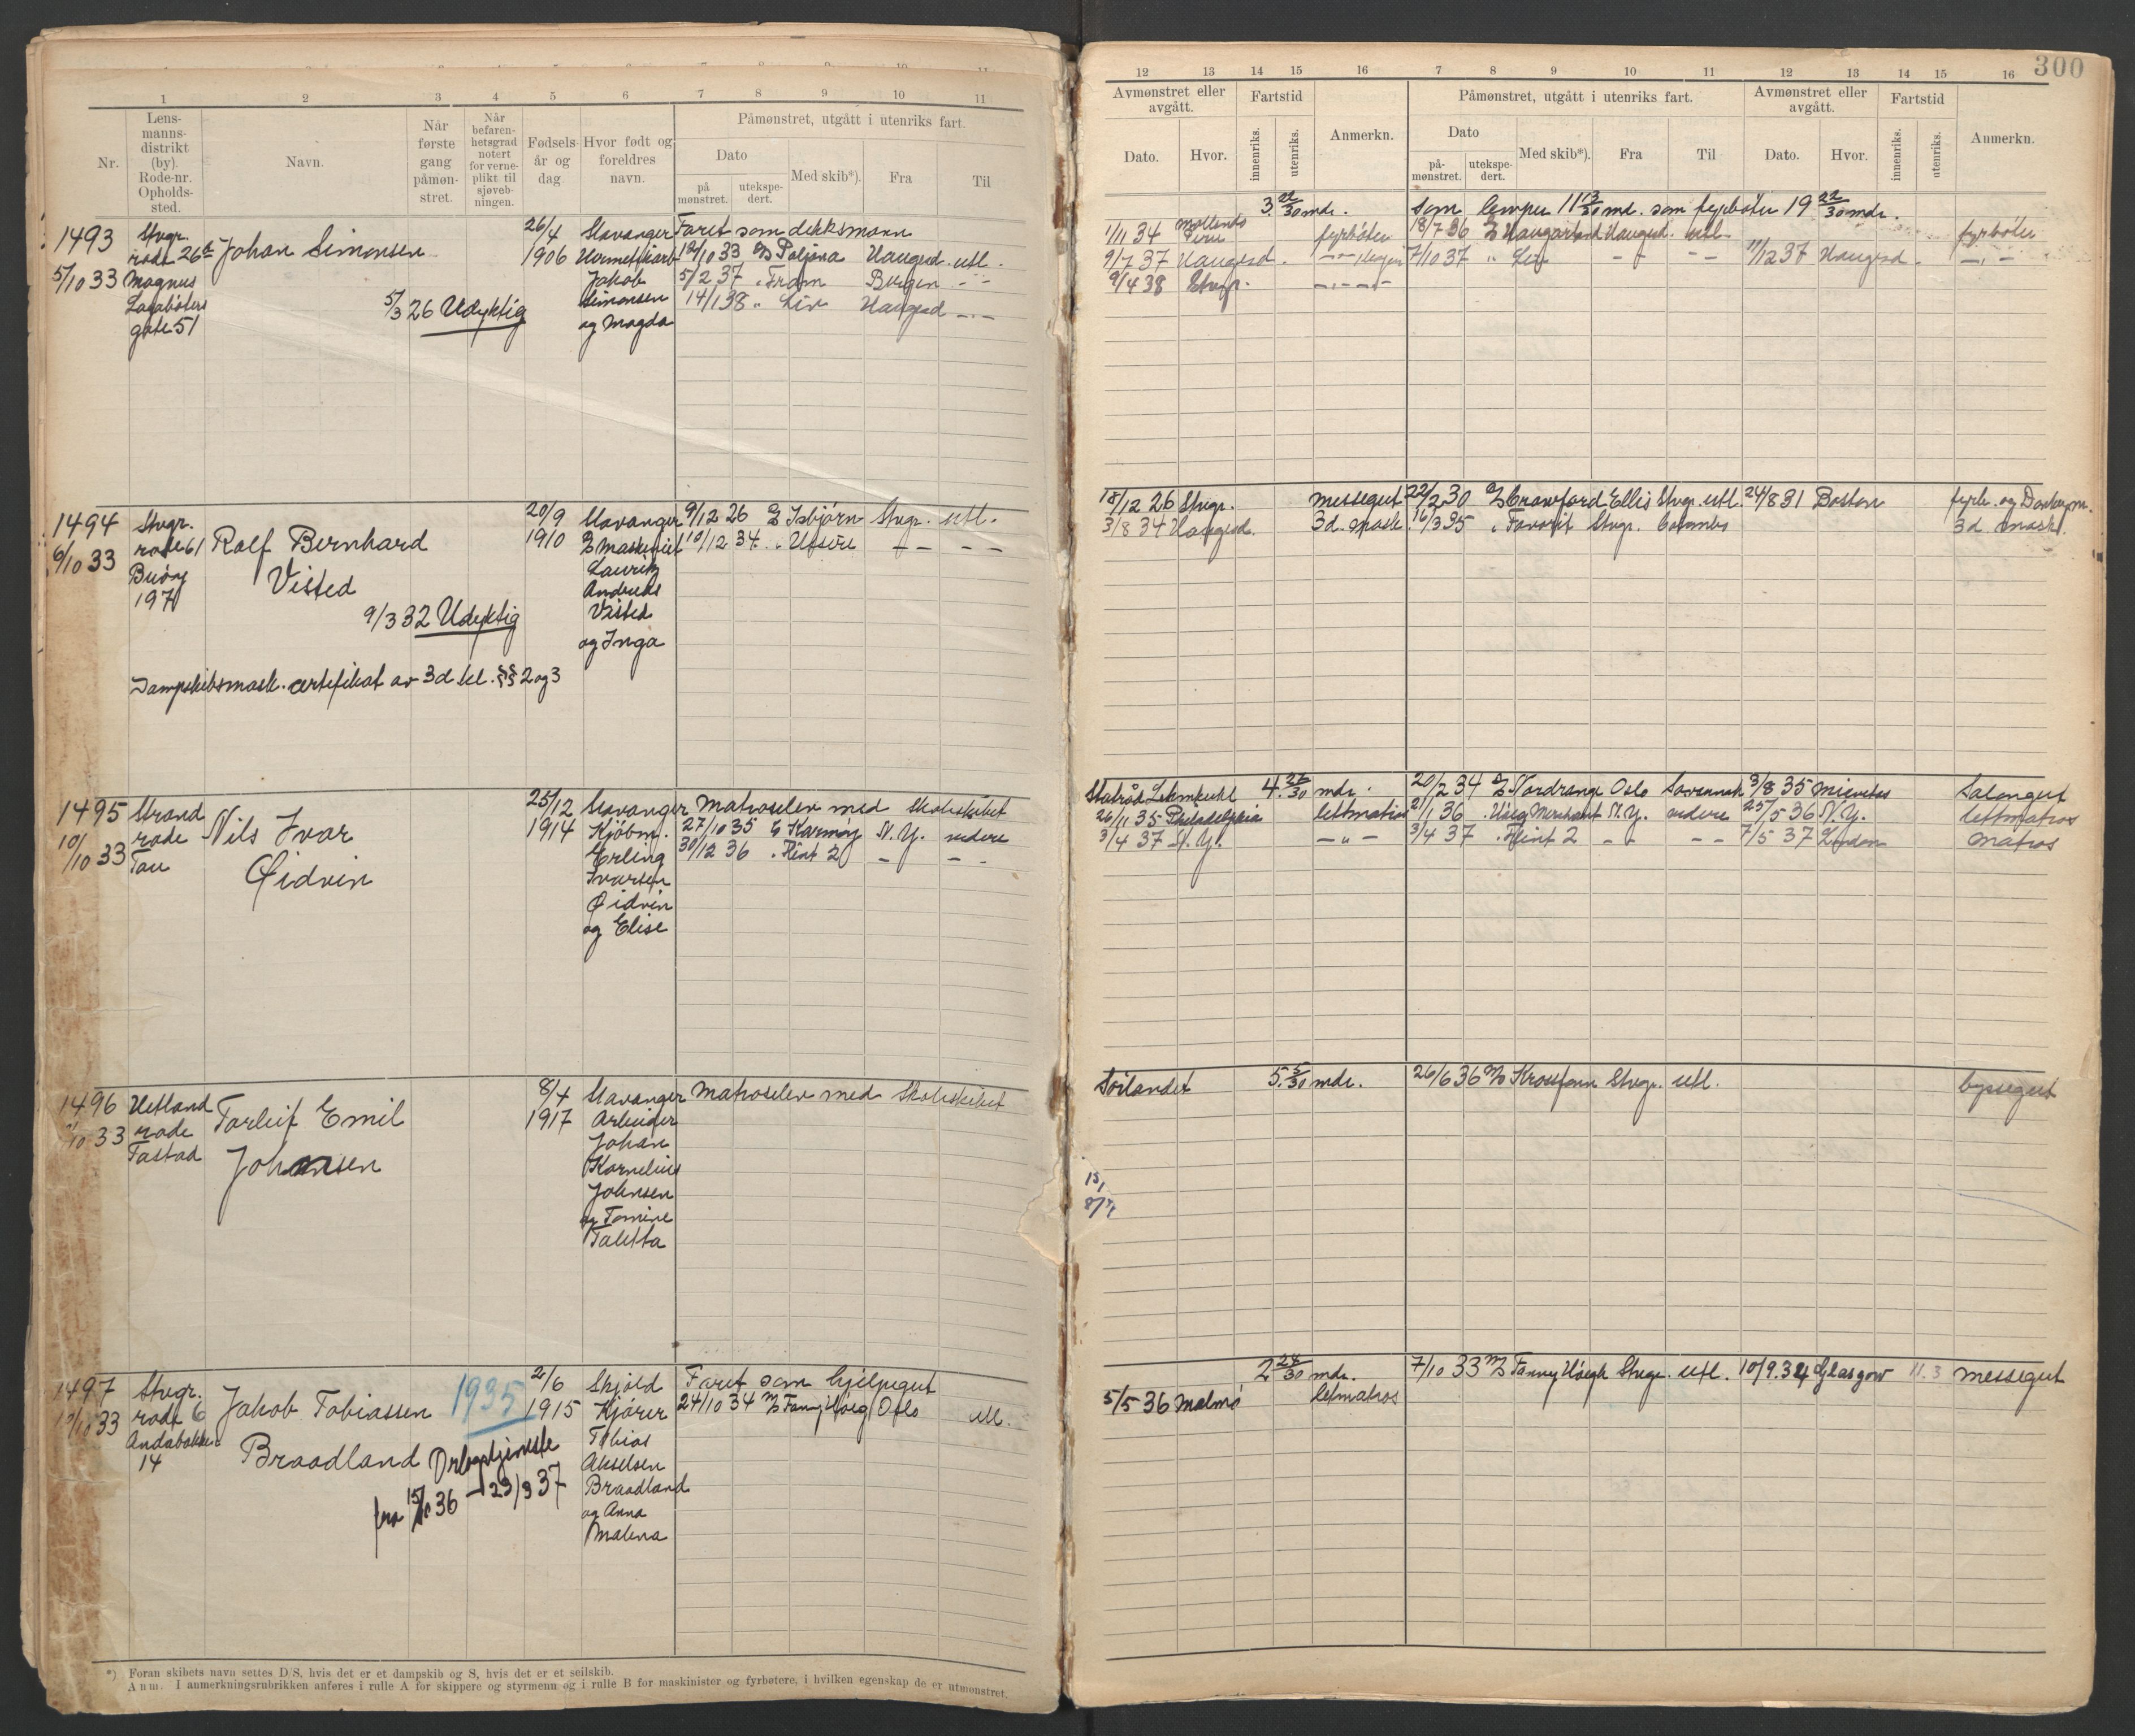 1 2 3 4 5 6 7 8 9 10 11
Nr.
Lens-
manns-
distrikt
(by).
Rode-nr.
Opholds-
sted.
Navn.
Når
første
gang
påmøn-
stret.
Når
befaren-
hetsgrad
notert
for verne-
plikt til
sjøveb-
ningen.
Fødsels-
år og
dag
Hvor født og
foreldres
navn.
Påmønstret, utgått i utenriks fart.
Dato
på
mønstret.
utekspe-
dert.
Med skib*).
Fra
Til
1493
5/10 33
Stvgr.
rode 26a
Magnus
Lagabøters
gate 51
Johan Simonsen
5/3 26 Udyktig
26/4
1906
Stavanger
Jakob
Simonsen
og Magda
Faret som dekksmann
12/10 33 Poljana Haugesd. utl.
5/2 37 " Fram Bergen - " -
14/1 38 " Liv Haugesd - " -
1494
6/10 33
Stvgr.
rode 61
Buøy
197
Rolf Bernhard
Visted
9/3 32 Udyktig
Dampskibsmask. certifikat av 3d kl. §§ 2 og 3
20/9
1910
Stavanger
Maskinist
Lauritz
Andreas
Visted
og Inga
9/12 26 Isbjørn Stvgr. utl.
10/12 34 " Utsire - - - -
1495
10/10 33
Strand
rode
Tau
Nils Ivar
Øidvin
25/12
1914
Stavanger
Kjøbm.
Erling
Ivarsen
Øidvin
og Elise
Matroselev med skoleskibet
27/10 35 Karmøy N.Y. videre
30/12 36 " Flint 2 - - -
1496
/10 33
Hetland
rode
Tastad
Torleif Emil
Johansen
8/4
1917
Stavanger
Arbeider
Johan
Kornelius
Johnsen
og Tomine
Taletta
Matroselev med skoleskibet
1497
/10 33
Stvgr.
rode 6
Andabakken
14
Jakob Tobiassen
Braadland
1935
Orlogstjeneste
fra 15/ 36 - 23/3 37
2/6
1915
Skjold
Kjører
Tobias
Akselsen
Braadland
og Anna
Malena
Faret som hjelpegut
24/10 34 M/S Fanny Høeg Oslo utl.
*) Foran skibets navn settes D/S, hvis det er et dampskib og S, hvis det er et seilskib.
Anm. I anmerkningsrubrikken anføres i rulle A for skippere og styrmenn og i rulle B for maskinister og fyrbøtere, i hvilken egenskap de er utmønstret.
300
12 13 14 15 16 7 8 9 10 11 12 13 14 15 16
Avmønstret eller
avgått.
Dato.
Hvor.
Fartstid
innenriks.
utenriks.
Anmerkn.
Påmønstret, utgått i utenriks fart.
Dato
på-
mønstret.
utekspe-
dert.
Med skib*).
Fra
Til
Avmønstret eller
avgått.
Dato.
Hvor.
Fartstid
innenriks.
utenriks.
Anmerkn.
3 22/30 mdr. som lemper 11 13/30 md. som fyrbøter 19 22/30 mdr.
1/11 34 Mollendo Peru fyrbøter 18/7 36 Haugarland Haugesd. utl. fyrbøter
9/7 37 Haugesd. - " - 7/10 37 " Liv - - - - 11/12 37 Haugesd. - " -
9/4 38 Stvgr. - " -
18/12 26 Stvgr. messegut 22/2 30 Crawford Ellis Stvgr. utl. 24/8 31 Boston fyrb. og Donkeym.
3/8 34 Haugesd. 3d. mask. 16/3 35 " Favorit Stvgr. Colombo 3d mask.
Statsråd Lehmkuhl 4 27/30 mdr. 20/2 34 Nordvangr Oslo Savannah 3/8 35 Salongut
26/11 35 Philadelphia lettmatros 21/1 36 " Høeg Merchant N.Y. videre 25/5 36 N.Y. lettmatros
3/4 37 N.Y. - " - 3/4 37 " Flint 2 - - - - 7/5 37 London matros
Sørlandet 5 5/30 mdr. 26/6 36 M/S Krossfonn Stvgr. utl. byssegut
2 24/30 mdr. 7/10 33 M/S Fanny Høegh Stvgr. utl. 10/9 34 Glasgow 11.3 messegut
5/5 36 Malmø letmatros